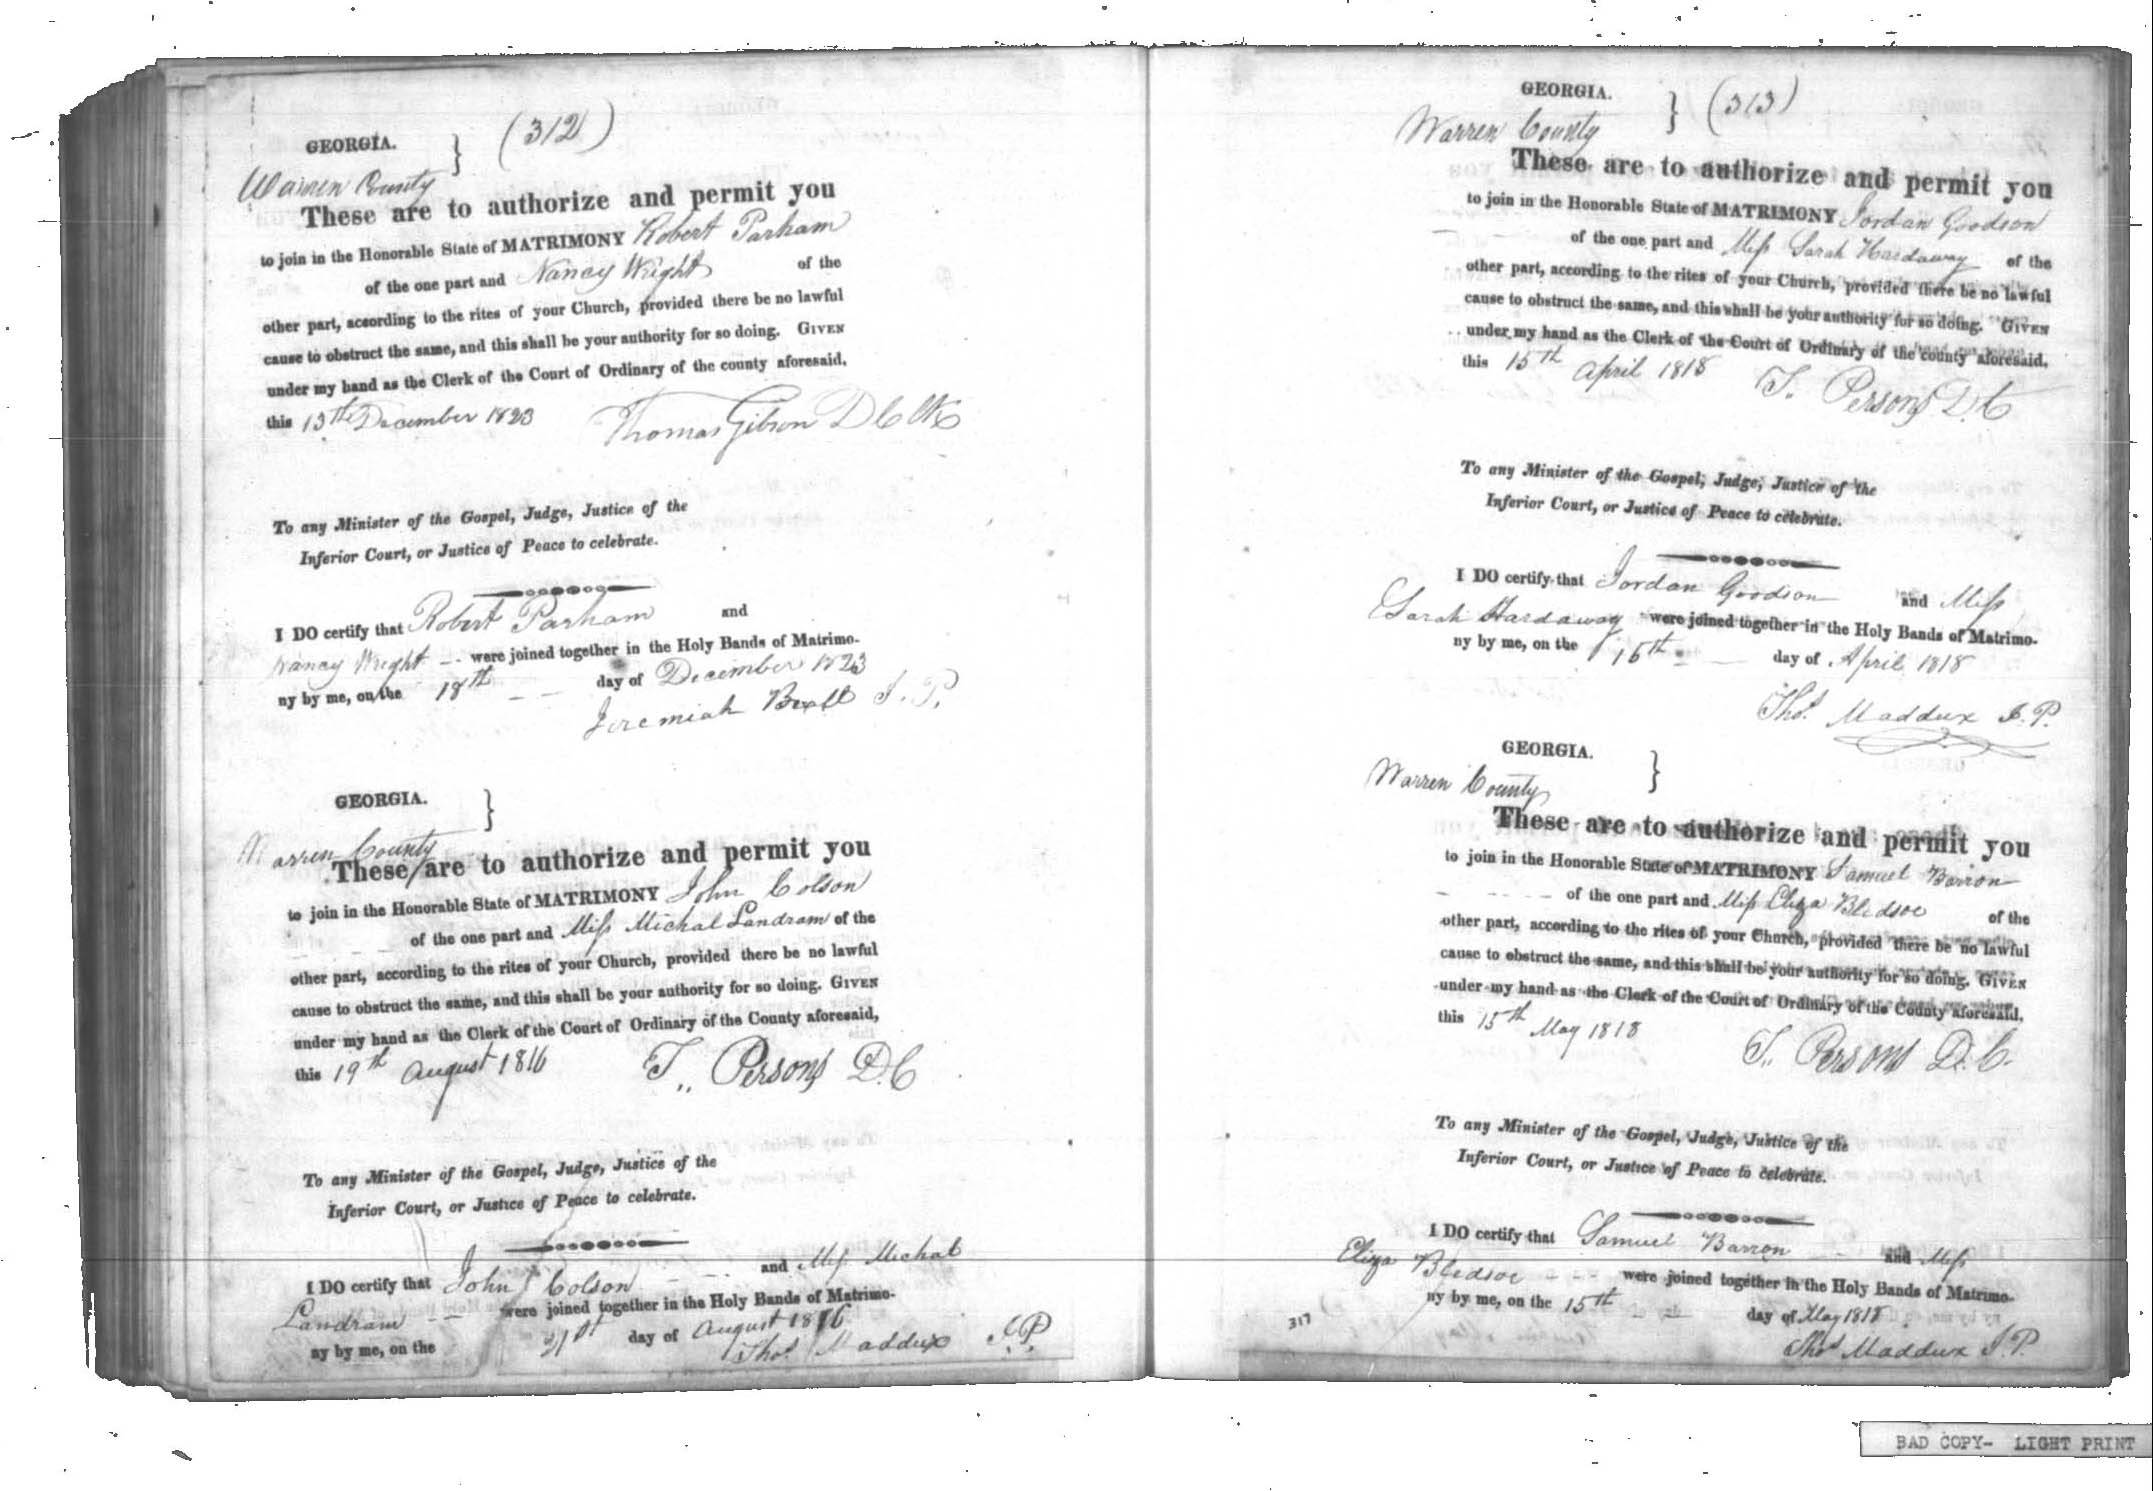 (312)
GEORGIA. }
Warren County
These are to authorize and permit you
to join in the Honorable State of MATRIMONY Robert Parham
of the one part and Nancy Wright of the
other part, according to the rites of your Church, provided there be no lawful
cause to obstruct the same, and this shall be your authority for so doing. GIVEN
under my hand as the Clerk of the Court of Ordinary of the county aforesaid,
this 13th December 1823 Thomas Gibson D C
To any Minister of the Gospel, Judge, Justice of the
Inferior Court, or Justice of Peace to celebrate.
I DO certify that Robert Parham and
Nancy Wright -- were joined together in the Holy Bands of Matrimo-
ny by me, on the 18th -- day of December 1823
Jeremiah J. P.
GEORGIA. }
Warren County
These are to authorize and permit you
to join in the Honorable State of MATRIMONY John Colson
of the one part and Miss Michal Landram of the
other part, according to the rites of your Church, provided there be no lawful
cause to obstruct the same, and this shall be your authority for so doing. GIVEN
under my hand as the Clerk of the Court of Ordinary of the County aforesaid,
this 19th August 1816 T. Persons D. C
To any Minister of the Gospel, Judge, Justice of the
Inferior Court, or Justice of Peace to celebrate.
I DO certify that John Colson - - and Miss Michal
Landram -- were joined together in the Holy Bands of Matrimo-
ny by me, on the 21st day of August 1816
Thos. Maddux J. P.
GEORGIA. } (313)
Warren County
These are to authorize and permit you
to join in the Honorable State of MATRIMONY Jordan Goodson
of the one part and Miss Sarah Hardaway of the
other part, according to the rites of your Church, provided there be no lawful
cause to obstruct the same, and this shall be your authority for so doing. GIVEN
under my hand as the Clerk of the Court of Ordinary of the county aforesaid,
this 15th April 1818 T. Persons D. C
To any Minister of the Gospel, Judge, Justice of the
Inferior Court, or Justice of Peace to celebrate.
I DO certify that Jordan Goodson and Miss
Sarah Hardaway were joined together in the Holy Bands of Matrimo-
ny by me, on the 15th -- day of April 1818
Thos. Maddux J. P.
GEORGIA. }
Warren County
These are to authorize and permit you
to join in the Honorable State of MATRIMONY Samuel Barron
- - - - of the one part and Miss Eliza Bledsoe of the
other part, according to the rites of your Church, provided there be no lawful
cause to obstruct the same, and this shall be your authority for so doing. GIVEN
under my hand as the Clerk of the Court of Ordinary of the County aforesaid,
this 15th May 1818 T. Persons D. C.
To any Minister of the Gospel, Judge, Justice of the
Inferior Court, or Justice of Peace to celebrate.
I DO certify that Samuel Barron and Miss
Eliza Bledsoe - - - were joined together in the Holy Bands of Matrimo-
ny by me, on the 15th -- day of May 1818
317
Thos Maddux J. P.
BAD COPY- LIGHT PRINT